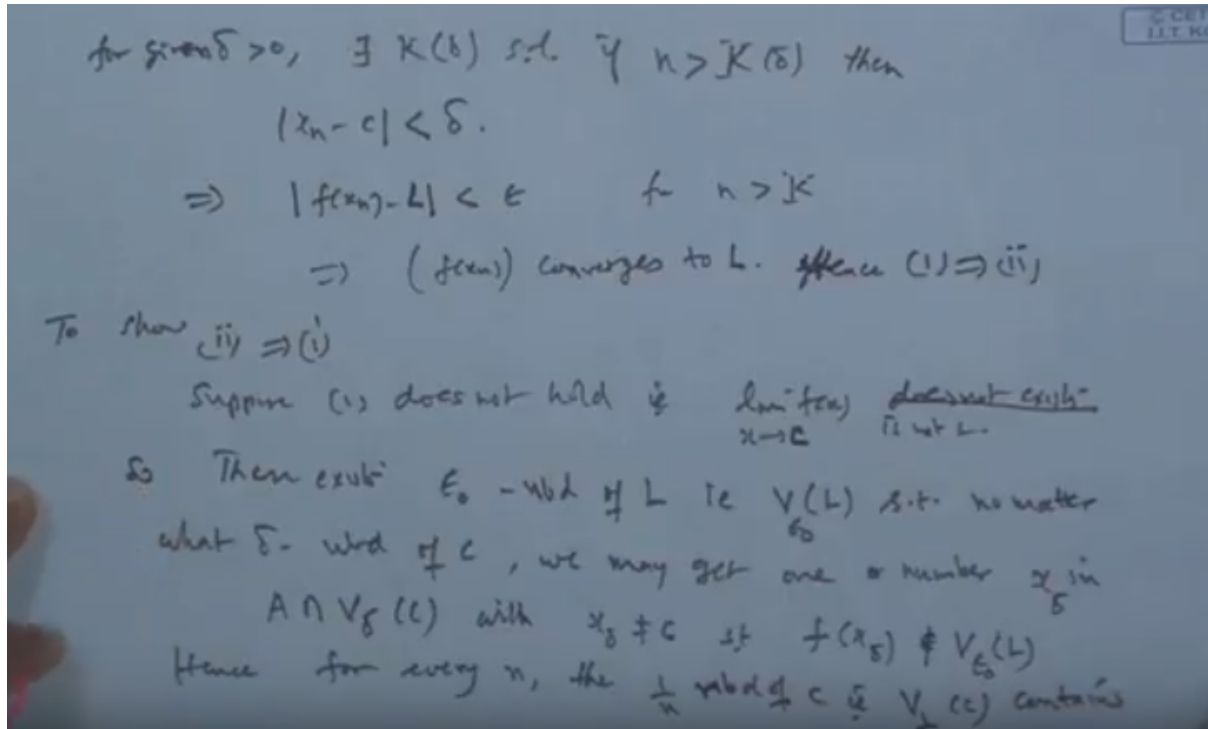 for given δ > 0, ∃ K(δ) s.t. if n > K(δ) then
|xn - c| < δ.
⇒ |f(xn) - L| < ε for n > K
⇒ (f(xn)) converges to L. Hence (i) ⇒ (ii)
To show (ii) ⇒ (i)
Suppose (i) does not hold ie lim f(x) does not exist
x→c is not L.
So Then exist ε₀ - nbd of L ie V_ε₀(L) s.t. no matter
what δ- nbd of c, we may get one number x_δ in
A ∩ V_δ(c) with x_δ ≠ c st f(x_δ) ∉ V_ε₀(L)
Hence for every n, the 1/n nbd of c ie V_1(c) contains
C CET
I.I.T. K